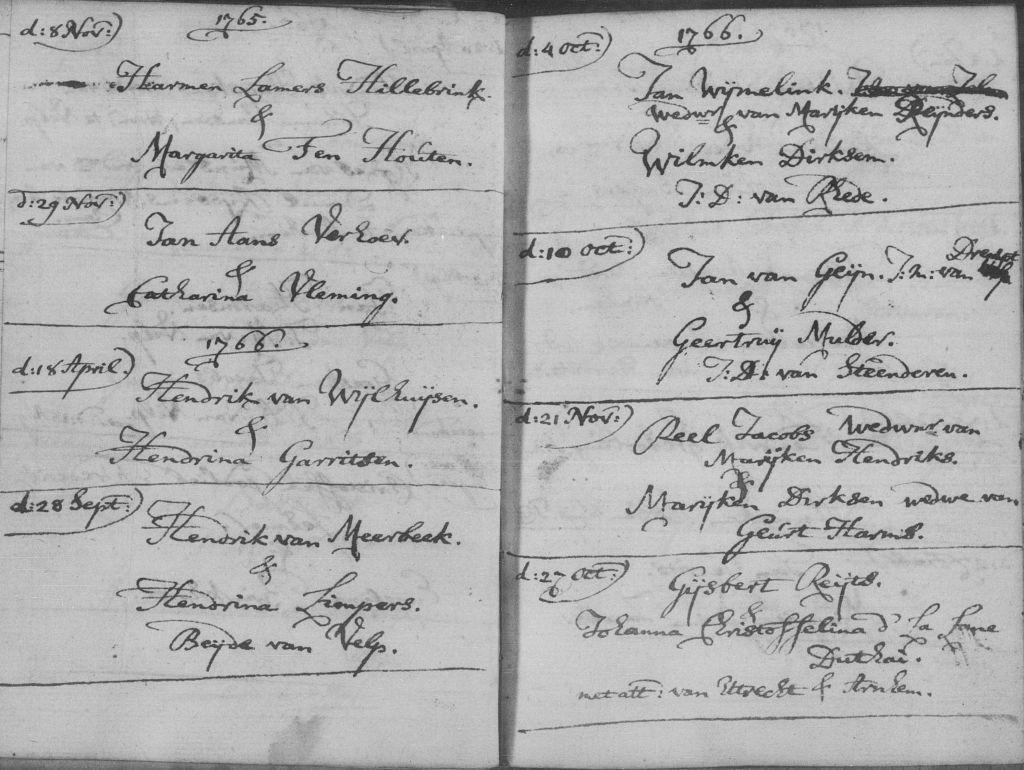 1765.
d: 8 Nov:)
Harmen Lamers Hillebrink.
&
Margarita Ten Houten.
d: 29 Nov:)
Jan Hans Verhoev.
&
Catharina Vleming.
1766.
d: 18 April)
Hendrik van Wijlhuijsen.
&
Hendrina Garritsen.
d: 28 Sept:)
Hendrik van Meerbeek.
&
Hendrina Liempers.
Beijde van Velp.
1766.
d: 4 Oct:)
Jan Wijmelink.
wedwr van Marijken Reijnders.
&
Wilmken Dirksem.
J: D: van Rhede.
d: 10 Oct:)
Drempt
Jan van Geijn. J: M: van
&
Geertruij Mulder.
J: D: van Steenderen.
d: 21 Nov:)
Reel Jacobs Wedwnr van
Marijken Hendriks.
&
Marijken Dirksen wedwe van
Geurt Harms.
d: 27 Oct:)
Gijsbert Reijts.
&
Johanna Christoffelina d' La
Duthai.
met att: van Uttrecht & Arnhem.